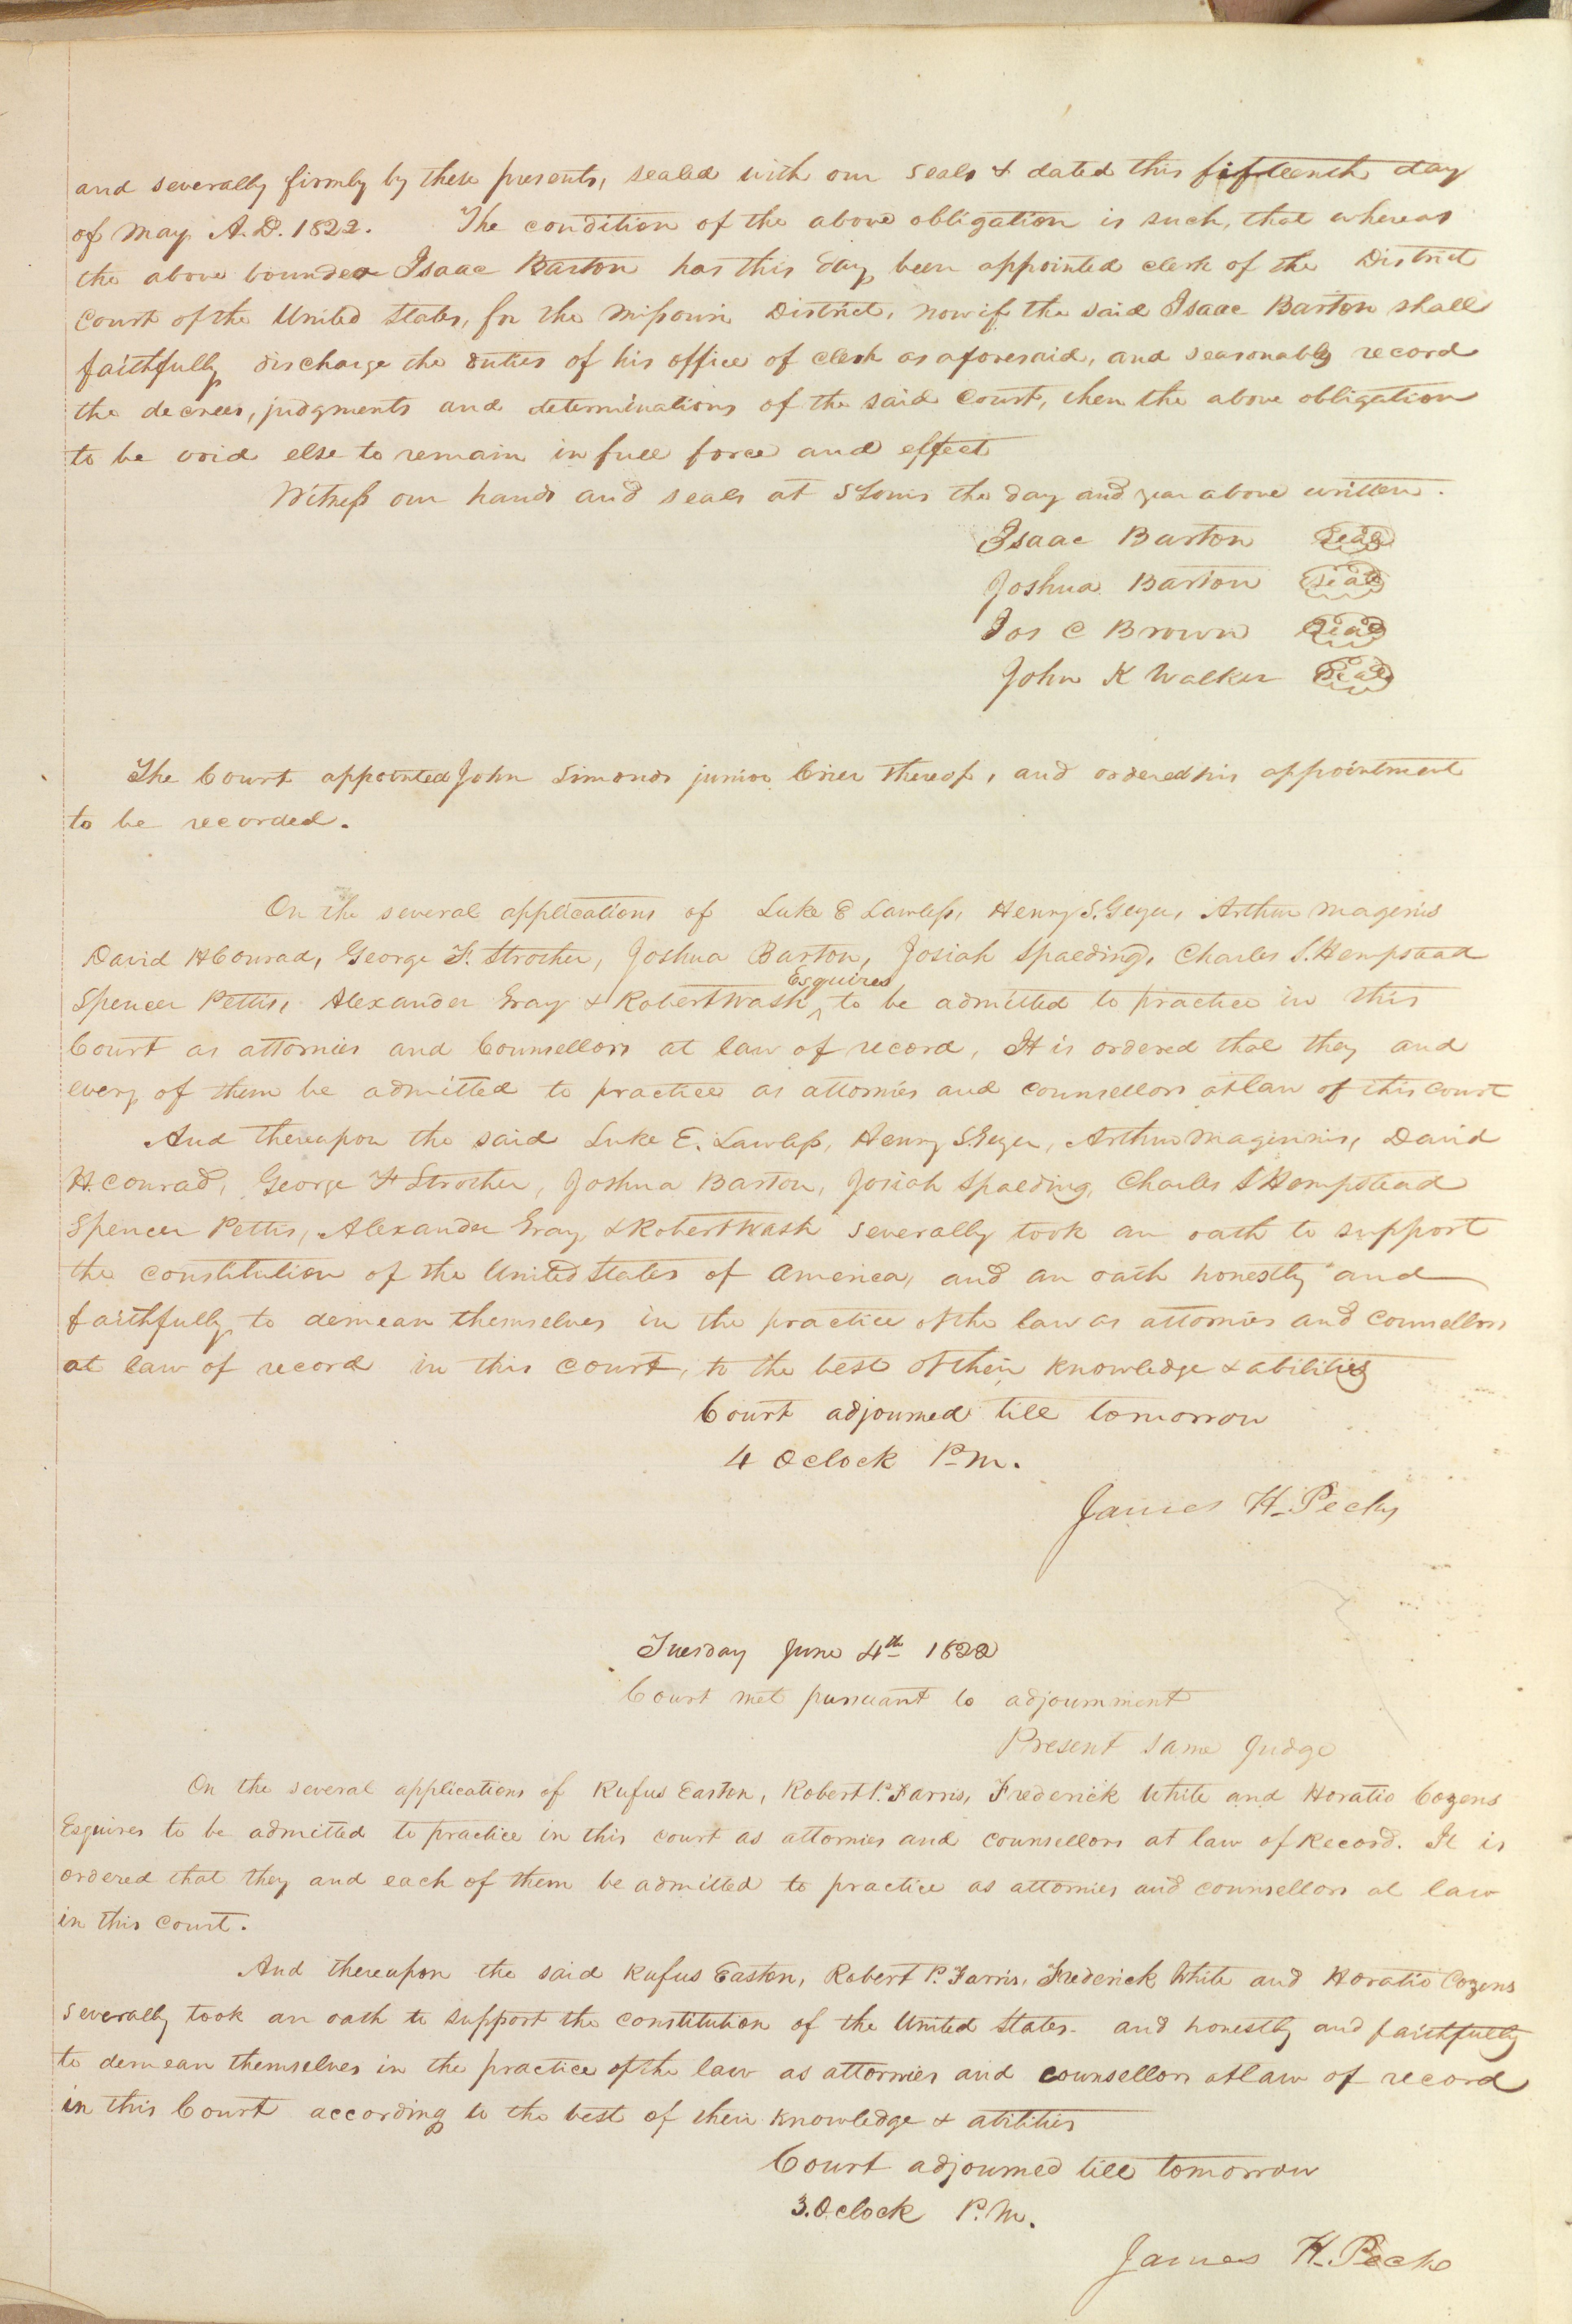 and severally firmly by these presents, sealed with our seals & dated this fifteenth day
of May A.D. 1822. The condition of the above obligation is such, that whereas
the above bounden Isaac Barton has this day been appointed clerk of the District
Court of the United States, for the Missouri District, now if the said Isaac Barton shall
faithfully discharge the duties of his office of clerk as aforesaid, and seasonably record
the decrees, judgments and determinations of the said Court, then the above obligation
to be void else to remain in full force and effect
Witness our hands and seals at St Louis the day and year above written.
Isaac Barton Seal
Joshua Barton Seal
Jos C Brown Seal
John K Walker Seal
The Court appointed John Simonds junior Crier thereof, and ordered his appointment
to be recorded.
On the several applications of Luke E Lawless, Henry S. Geyer, Arthur Magenis
David H Conrad, George F. Strother, Joshua Barton, Josiah Spalding, Charles S. Hempstead
Esquires
Spencer Pettis, Alexander Gray & Robert Wash ^ to be admitted to practice in this
Court as attornies and Counsellors at law of record, It is ordered that they and
every of them be admitted to practice as attornies and counsellors at law of this court
And thereupon the said Luke E. Lawless, Henry S. Geyer, Arthur Magennis, David
H. Conrad, George F Strother, Joshua Barton, Josiah Spalding, Charles S Hempstead
Spencer Pettis, Alexander Gray & Robert Wash severally took an oath to support
the constitution of the United States of America, and an oath honestly and
faithfully to demean themselves in the practice of the law as attornies and Counsellors
at law of record in this court, to the best of their knowledge & abilities
Court adjourned till tomorrow
4 Oclock P.M.
James H. Peck
Tuesday June 4th 1822
Court met pursuant to adjournment
Present same Judge
On the several applications of Rufus Easton, Robert P. Farris, Frederick White and Horatio Cozens
Esquires to be admitted to practice in this court as attornies and counsellors at law of Record. It is
ordered that they and each of them be admitted to practice as attornies and counsellors at law
in this court.
And thereupon the said Rufus Easton, Robert P. Farris, Frederick White and Horatio Cozens
severally took an oath to support the constitution of the United States. and honestly and faithfully
to demean themselves in the practice of the law as attornies and counsellors at law of record
in this Court according to the best of their knowledge & abilities
Court adjourned till tomorrow
3. Oclock P.M.
James H. Peck